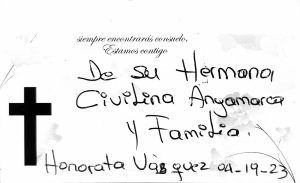 siempre encontrarás consuelo.
Estamos contigo
De su Hermana
Civilina Angamarca
y Familia.
Honorata Vásquez 04-19-23